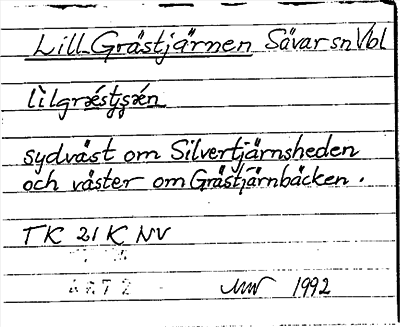 Lill-Grästjärnen Sävar sn Vbl
sydväst om Silvertjärnsheden
och väster om Grästjärnbäcken.
TK 21 K NV
1992